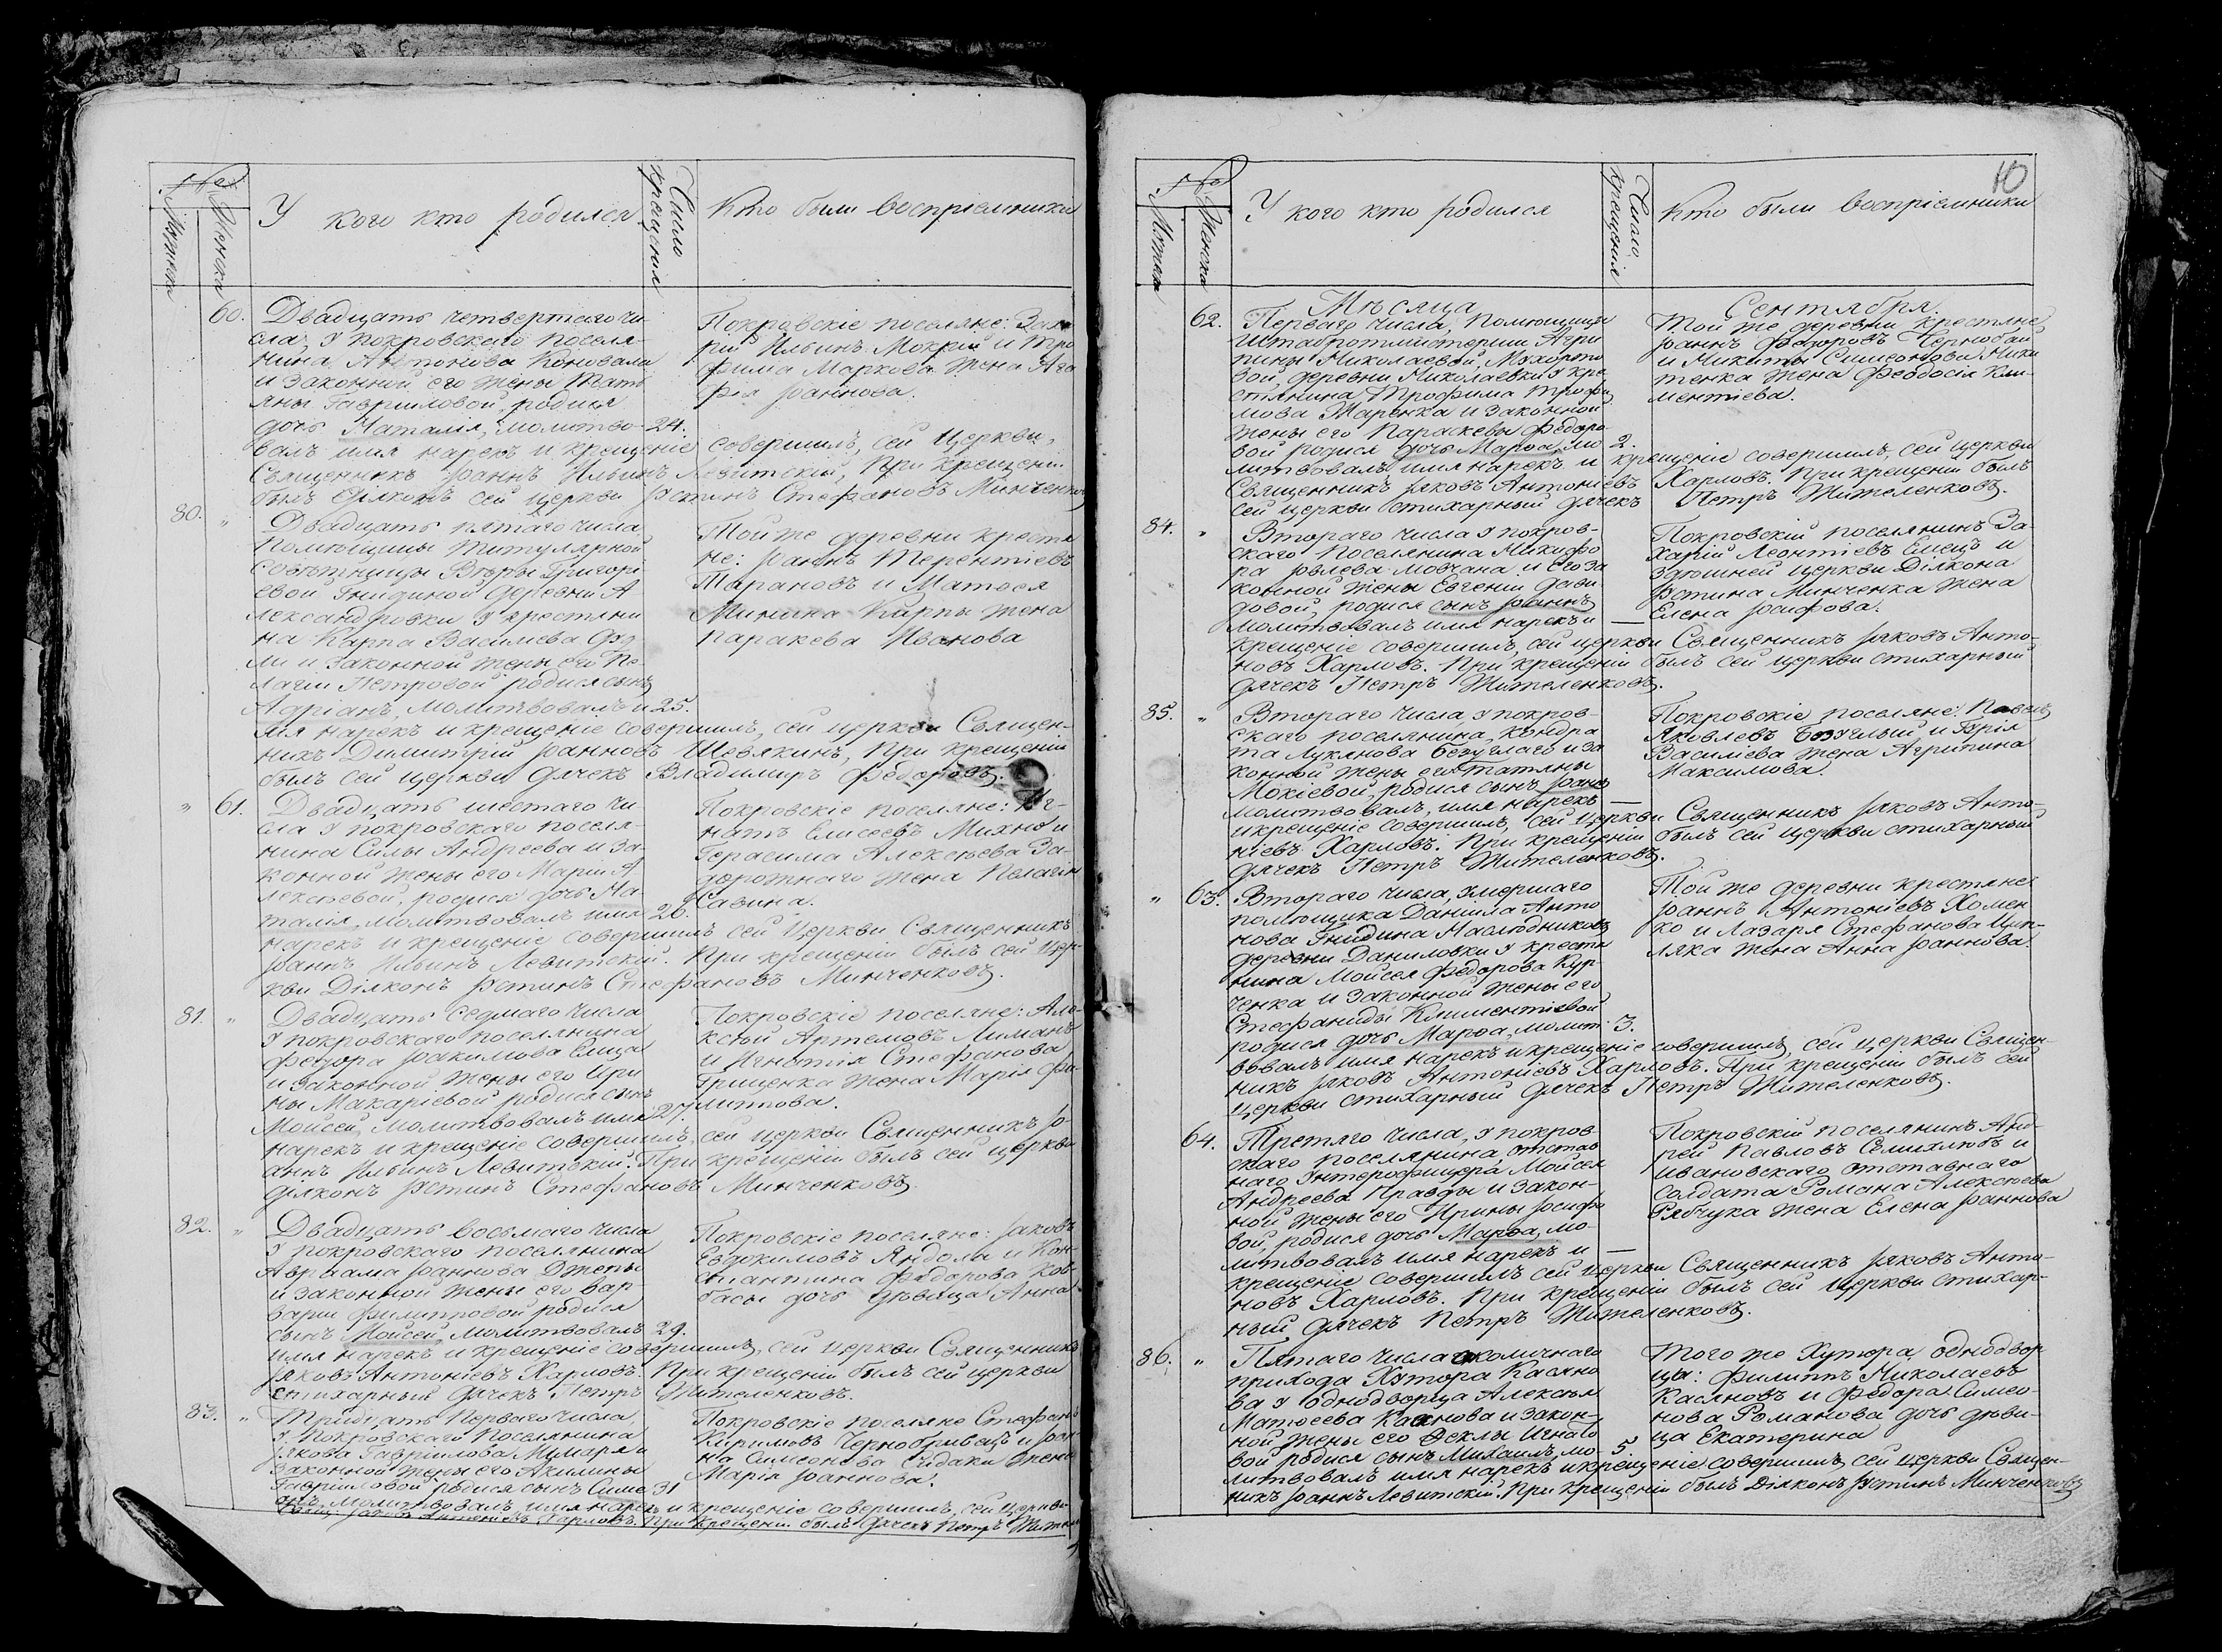 №
Мужска
Женска
У кого кто родился
Число крещения
Кто были Воспріемники
60.
Двадцать четвертаго чи-
сла, У покровскаго поселя-
нина Антонова Коновала
и законной его жены Тать
яны Гавриловой, родися
дочь Наталія, молитво- 24.
валъ имя нарекъ и крещеніе совершилъ, сей Церкви,
Священникъ Іоаннъ Ильинъ Левитскій, При крещеніи
былъ Діяконъ сей церкви Устинъ Стефановъ Минченко
Покровскіе поселяне: Заха
рій Ильинъ Мокрий и Тро
фима Маркова жена Ага
фія Іоаннова.
80. "
Двадцать пятаго числа
Помѣщицы титулярной
совѣтницы Вѣры Григорі
евой Гнидиной деревни А
лександровки У крестяни
на Карпа Василіева
ли и законной жены его Пе-
лагіи Петровой родися сынъ
Адріанъ, молитвовалъ и 25.
мя нарекъ и крещеніе совершилъ, сей церкви Священ-
никъ Димитрій Іоанновъ Шевякинъ, При крещеніи
былъ сей церкви дячекъ Владимиръ Федоровъ.
Той же деревни крестя
не: Іоаннъ Терентіевъ
Тарановъ и Матфея
Минина Карпы жена
паракева Иванова
" 61.
Двадцать шестаго чи-
сла У покровскаго поселя-
нина Силы Андреева и за-
конной жены его Маріи А
лексѣевой, родися дочь На-
талія, молитвовалъ имя 26.
нарекъ и крещеніе совершилъ сей Церкви Священникъ
Іоаннъ Ильинъ Левитскій. При крещеніи былъ сей Цер-
кви Діяконъ Устинъ Стефановъ Минченковъ.
Покровскіе поселяне: Иг-
натъ Елисеевъ Михно и
Герасима Алексѣева За-
дорожнаго жена Пелагія
Савина.
81. "
Двадцать седмаго числа
У покровскаго поселянина
Федора Іоакимова Елца
и законной жены его Ири
ны Макаріевой родися сынъ
Мойсей, молитвовалъ имя 27.
нарекъ и крещеніе совершилъ, сей церкви Священникъ Іо-
аннъ Ильинъ Левитскій. При крещеніи былъ сей церкви
діяконъ Устинъ Стефановъ Минченковъ.
Покровскіе поселяне: Але-
ксѣй Артемовъ Лиманъ
и Игнатія Стефанова
Грищенка жена Марія Фи-
липова.
82. "
Двадцать восьмаго числа
У покровскаго поселянина
Авраама Іоаннова Джепы
и законной жены его Вар-
вары Филипповой родися
сынъ Мойсей, молитвовалъ 29.
имя нарекъ и крещеніе совершилъ, сей церкви Священникъ
Іяковъ Антоніевъ Харловъ. При крещеніи былъ сей церкви
стихарный дячекъ Петръ Жителенковъ.
Покровскіе поселяне: Іаковъ
Евдокимовъ Яндола и Кон-
стантина Федорова Ков-
басы дочь дѣвица Анна.
83. "
Тридцать Перваго числа,
У Покровскаго Поселянина
Іякова Гавріилова и
Законной жены его Акилины
Гавриловой родися сынъ Симе 31
онъ, молитвовалъ, имя нарекъ и крещеніе совершилъ, сей Церкви
Свящ. Іаковъ Антоніевъ Харловъ. При крещеніи былъ дячекъ Петръ
Покровскіе поселяне Стефанъ
Кириловъ Чернобривецъ и Іоан-
на Симеонова жена
Марія Іоаннова.
10
№
Мужска
Женска
У кого кто родился
Число крещения
Кто были воспріемники
Мѣсяца
Сентября.
62.
Перваго числа, помѣщицы
Штабротмистерши Агри
пины Николаевой, Мухорто
вой, деревни Николаевки У кре
стянина Трофима Трофи
мова Маренка и законной
жены его Параскевы Федоро-
вой родися дочь Марѳа, мо 2.
литвовалъ имя нарекъ и крещеніе совершилъ, сей церкви
Священникъ Іяковъ Антоніевъ Харловъ. При крещеніи былъ
сей церкви стихарный дячекъ Петръ Жителенковъ.
Той же деревни крестяне
Іоаннъ Федоровъ Чернобай
и Никиты Симеонова Ники
тенка жена Феодосія Кли-
ментіева.
84. "
Втораго числа У покров-
скаго поселянина Никифо
ра Іовлева Мовчана и его за
конной жены Евгеніи Дави
довой, родися сынъ Іоаннъ
молитвовалъ имя нарекъ и —
крещеніе совершилъ, сей церкви Священникъ Іяковъ Анто-
новъ Харловъ. При крещеніи былъ сей церкви стихарный
дячекъ Петръ Жителенковъ.
Покровскій поселянинъ За-
харій Леонтіевъ Елецъ и
здѣшней церкви Діякона
Устина Минченка жена
Елена Іосифова.
85. "
Втораго числа, У покров-
скаго поселянина, Кондра
та Лукянова Безуглаго и за
конной жены его Татяны
Мокіевой, родися сынъ Іоаннъ
молитвовалъ, имя нарекъ —
и крещеніе совершилъ, сей церкви Священникъ Іяковъ Анто-
ніевъ Харловъ. При крещеніи былъ сей церкви стихарный
дячекъ Петръ Жителенковъ.
Покровскіе поселяне: Павелъ
Яковлевъ Безуглый и Гурія
Василіева жена Агрипина
Максимова.
" 63.
Втораго числа, умершаго
помѣщика Даніила Анто
нова Гнидина Наслѣдниковъ
деревни Даниловки У крестя
нина Мойсея Федорова Кур-
ченка и законной жены его
Стефаниды Климентіевой
родися дочь Марѳа, молит- 3.
вовалъ имя нарекъ и крещеніе совершилъ, сей церкви Священ-
никъ Іяковъ Антоніевъ Харловъ. При крещеніи былъ сей
церкви стихарный дячекъ Петръ Жителенковъ.
Той же деревни крестяне
Іоаннъ Антоніевъ Хомен
ко и Лазаря Стефанова Цип-
ляка жена Анна Іоаннова.
64.
Третяго числа, У покров-
скаго поселянина, отстав
наго Унтерофицера Мойсея
Андреева Правды и закон-
ной жены его Ирины Іосифо
вой, родися дочь Марѳа, мо-
литвовалъ имя нарекъ и —
крещеніе совершилъ сей церкви Священникъ Іяковъ Анто-
новъ Харловъ. При крещеніи былъ сей церкви стихар-
ный, дячекъ Петръ Жителенковъ.
Покровскій поселянинъ Анд-
рей Павловъ Семихлѣбъ и
ивановскаго отставнаго
солдата Романа Алексѣева
Рябчука жена Елена Іоаннова
86. "
Пятаго числа околичнаго
прихода Хутора Касяно
ва У однодворца Алексѣя
Матѳеева Касянова и закон-
ной жены его Ѳеклы Игнато
вой родися сынъ Михаилъ, мо- 5
литвовалъ имя нарекъ и крещеніе совершилъ сей церкви Священ-
никъ Іоаннъ Левитскій. При крещеніи былъ Діяконъ Устинъ Минченковъ
Того же Хутора однодвор
цы: Филиппъ Николаевъ
Касяновъ и Федора Симео-
нова Романова дочь дѣви-
ца Екатерина